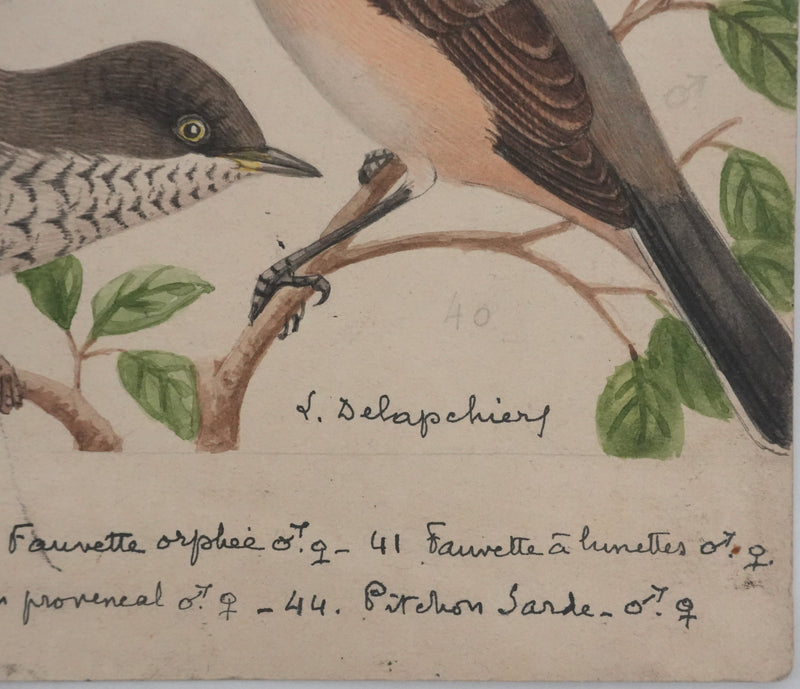 ♂
40
L. Delapchier
Fauvette orphée ♂. ♀ - 41 Fauvette à lunettes ♂. ♀.
n provencal ♂. ♀ - 44. Pitchou Sarde - ♂. ♀